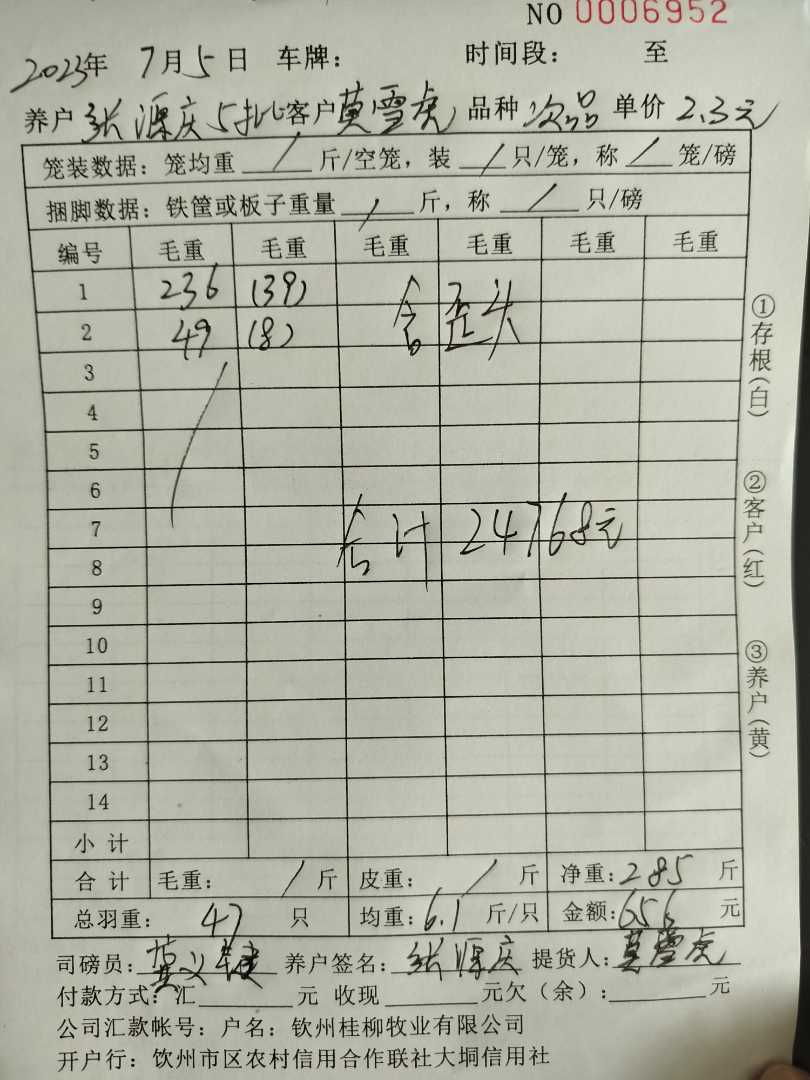 NO 0006952
2023年 7月5日 车牌： 时间段： 至
养户 张源庆5批 客户 莫雪虎 品种 次品 单价 2.3元
笼装数据：笼均重 / 斤/空笼，装 / 只/笼，称 / 笼/磅
捆脚数据：铁筐或板子重量 / 斤，称 / 只/磅
编号 毛重 毛重 毛重 毛重 毛重 毛重
1 236 (39) 含歪头
2 49 (8)
3
4
5
6
7 合计 24768元
8
9
10
11
12
13
14
小计
合计 毛重： / 斤 皮重： / 斤 净重：285 斤
总羽重： 47 只 均重：6.1 斤/只 金额：656 元
司磅员： 养户签名：张源庆 提货人：莫雪虎
付款方式：汇 元 收现 元欠（余）： 元
公司汇款帐号：户名：钦州桂柳牧业有限公司
开户行：钦州市区农村信用合作联社大垌信用社
①存根（白）
②客户（红）
③养户（黄）